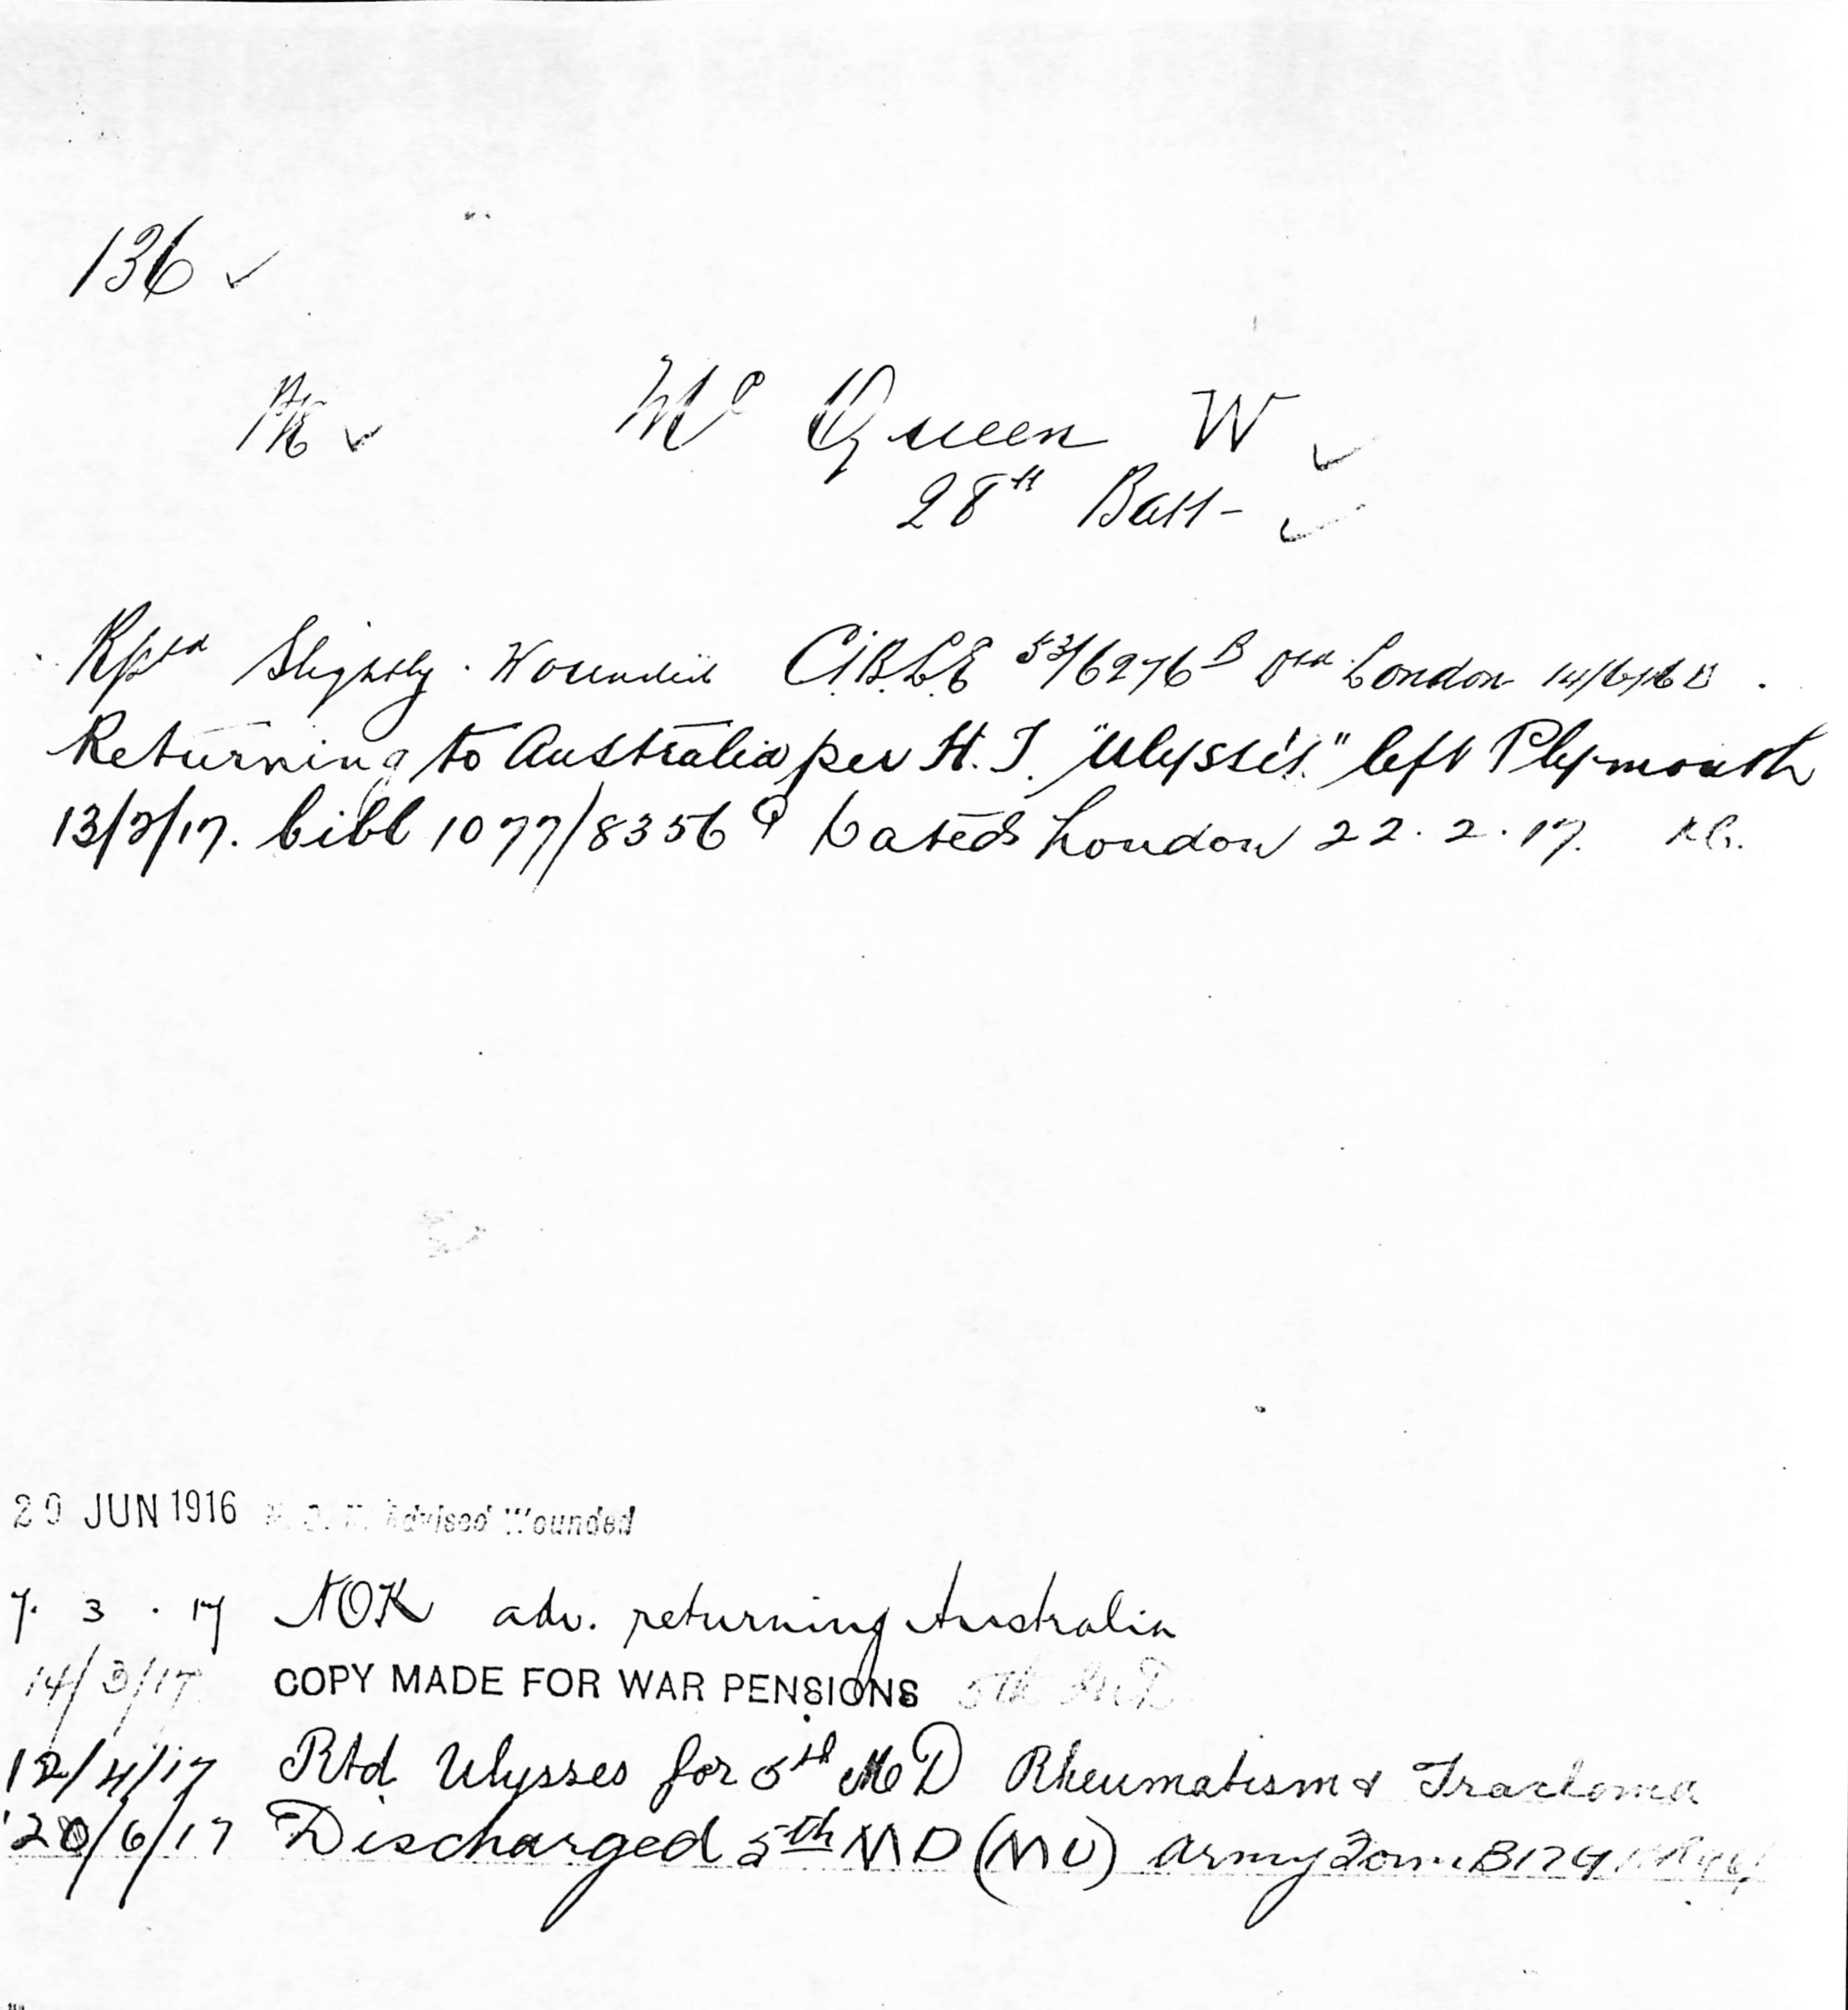 136 ✓
Pte ✓ Mc Queen W ✓
28th Batt- ✓
Rptd Slightly Wounded CABLE 53/6276 B Dtd London 14/6/16
Returning to Australia per H.T. "Ulysses" left Plymouth
13/2/17. Cibl 1077/8356 Dated London 22.2.17.
20 JUN 1916 N.O.K. Advised Wounded
7. 3. 17 NOK adv. returning Australia
14/3/17 COPY MADE FOR WAR PENSIONS 5th M.D
12/4/17 Rtd Ulysses for 5th MD Rheumatism & Trachoma
20/6/17 Discharged 5th MD (MU) Army Form B179